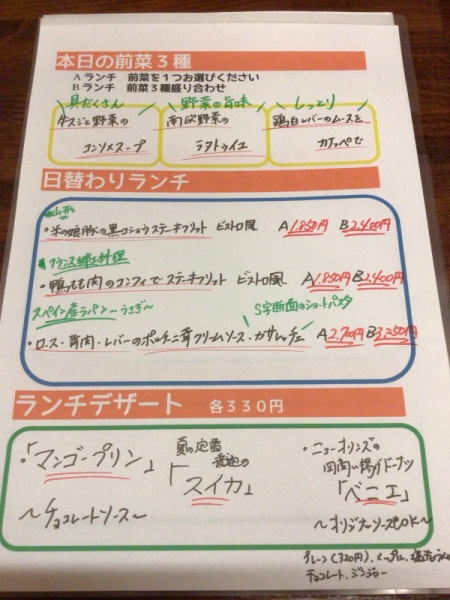 本日の前菜3種
Aランチ 前菜を1つお選びください
Bランチ 前菜3種盛り合わせ
具だくさん
牛スジと野菜の
コンソメスープ
野菜の旨味
南欧野菜の
ラタトゥイユ
しっとり
鶏白レバーのムースを
カナッペで
日替わりランチ
山形
・米の娘豚の黒コショウステーキフリット ビストロ風 A1.850円 B2.400円
フランス郷土料理
・鴨もも肉のコンフィでステーキフリット ビストロ風 A1.850円 B2.400円
スペイン産ラパン～うさぎ～
S字断面のショートパスタ
・ロース・背肉・レバーのポルチーニ茸クリームソース・カザレッチェ A2.710円 B3.250円
ランチデザート 各330円
・「マンゴープリン」
～チョコレートソース～
夏の定番
普通の
「スイカ」
・ニューオリンズの
四角い揚げドーナツ
「ベニエ」
～オリジナルソースOK～
プレーン(320円)、メープル、塩
チョコレート、ジンジャー